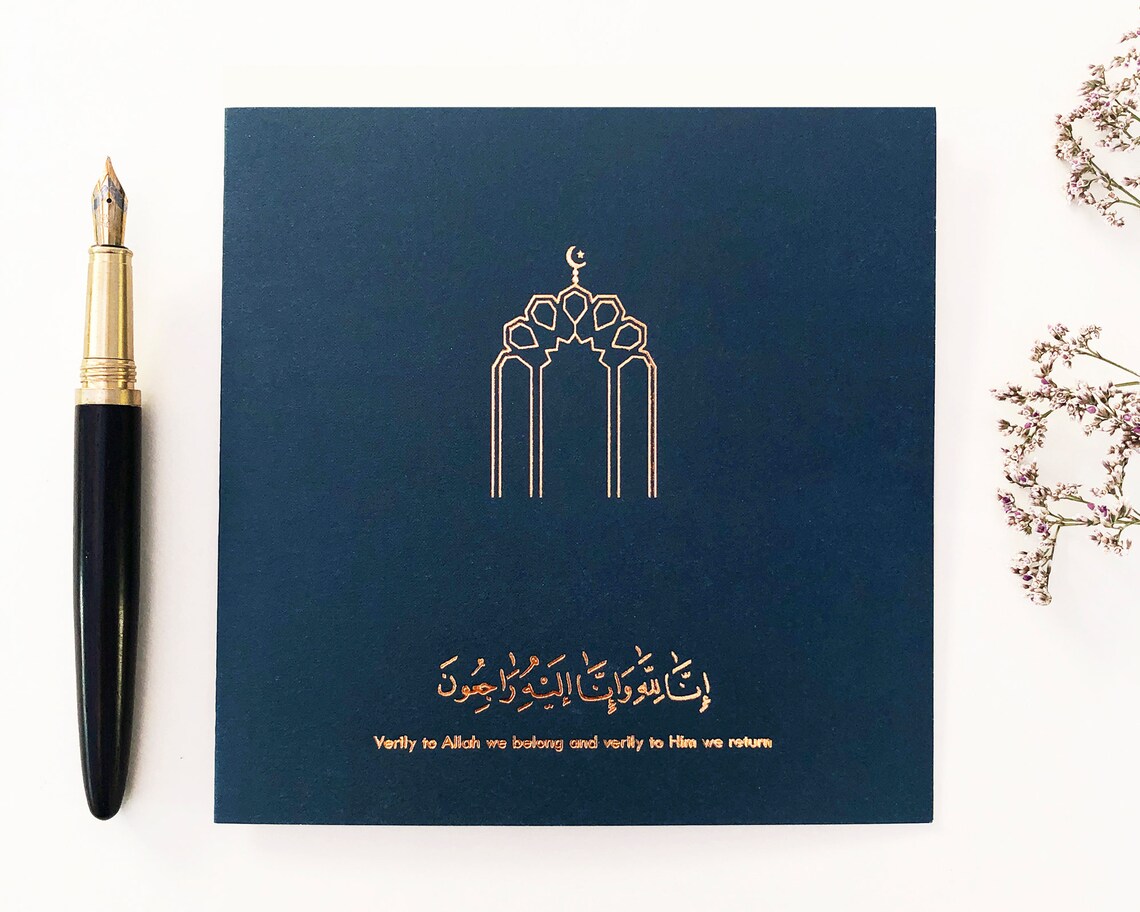 إِنَّا لِلَّهِ وَإِنَّا إِلَيْهِ رَاجِعُونَ
Verily to Allah we belong and verily to Him we return